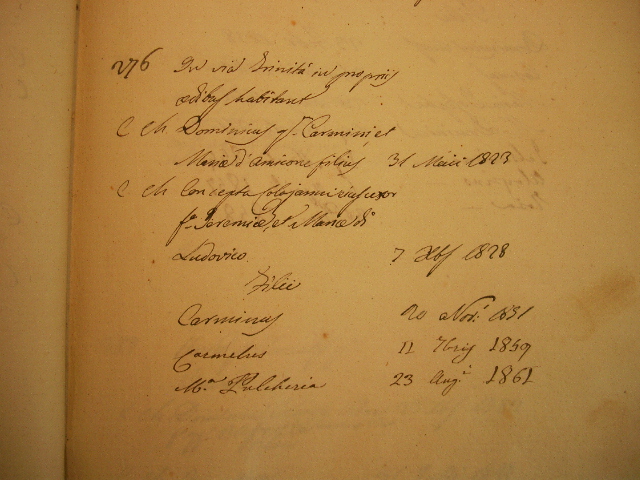 276 In via Trinità in propriis
ædibus habitant
C Ch Dominicus q.m Carmini, et
Mariæ d'Amicone filius 31 Maii 1823
C Ch Concepta Colojanni ejus uxor
f.a Jeremiæ, et Mariæ di
Ludovico 7 Xbs 1828
Filii
Carminus 20 Nov: 1851
Carmelus 11 7bris 1859
M.a Pulcheria 23 Aug.i 1861